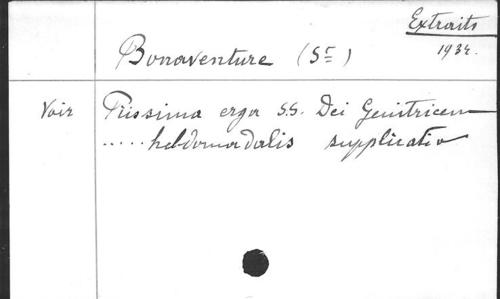 Extraits
1934.
Bonaventure (St)
Voir Piissima erga S.S. Dei Genitricem
..... hebdomadalis supplicatio